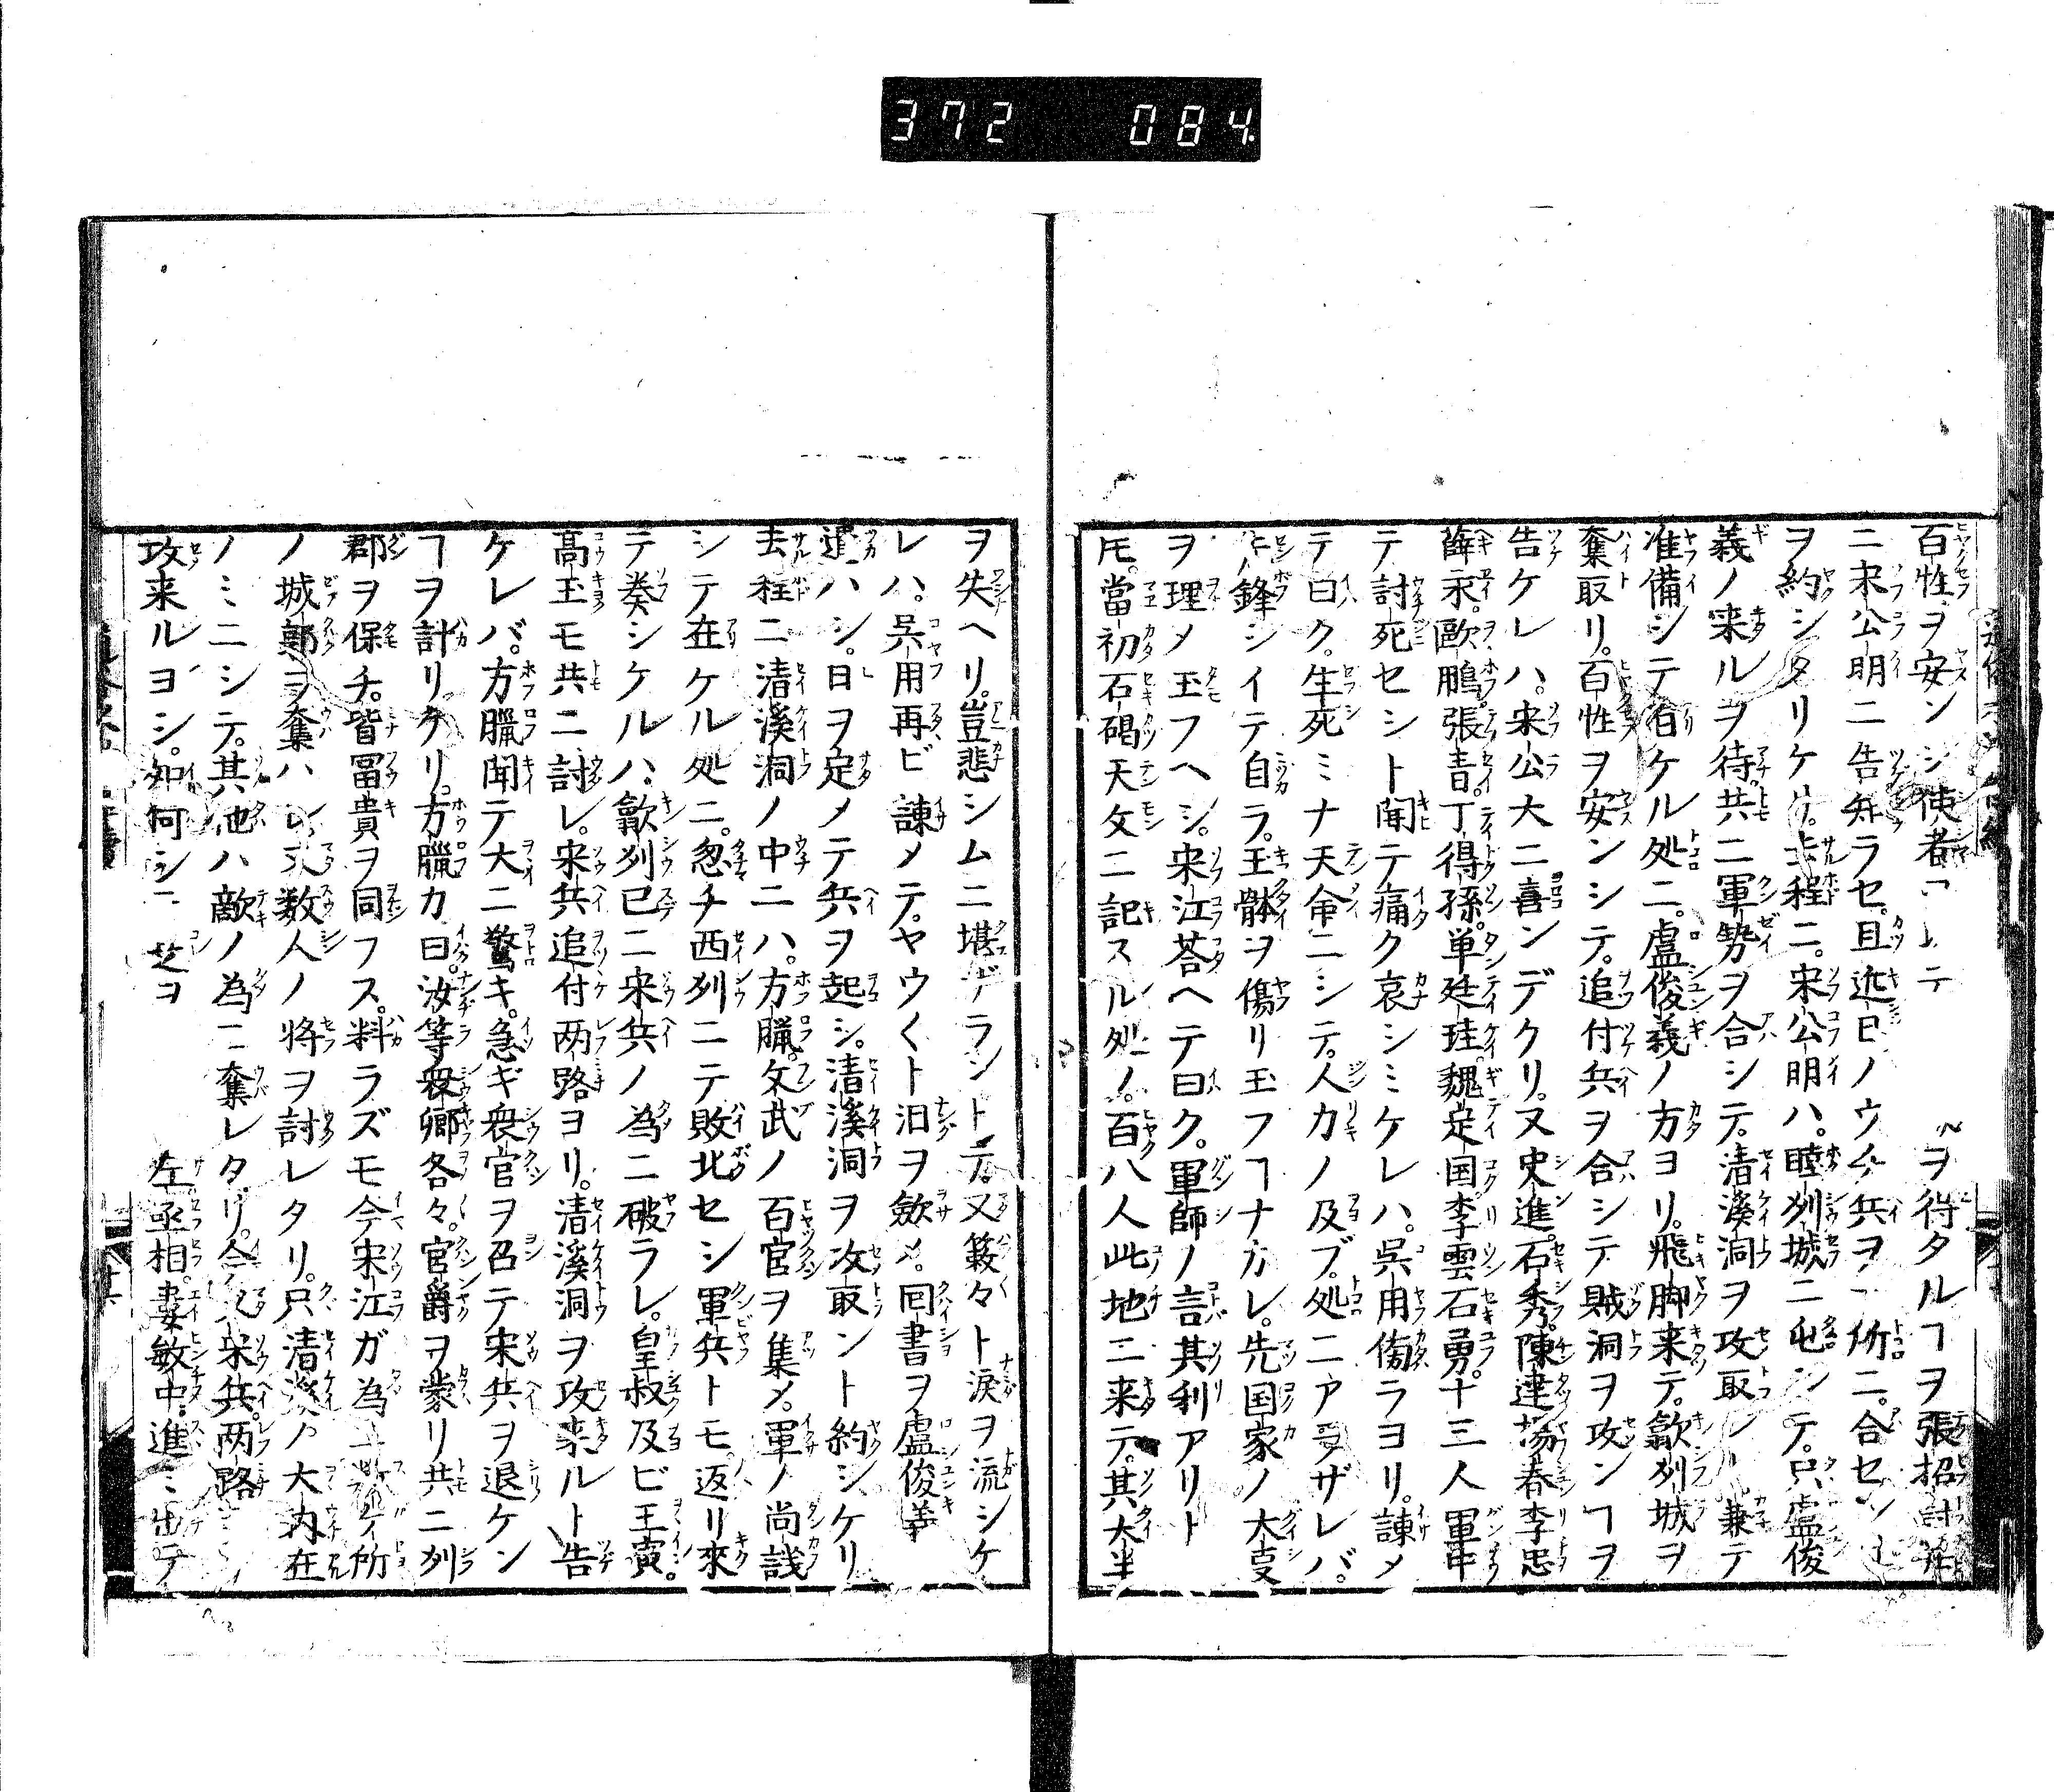 372 084
百性ヲ安ンシ使者 テ ヲ得タルヿヲ張招討
ニ宋公明ニ告知ラセ。且近日ノウチ兵ヲ一所ニ。合セン
ヲ約シタリケリ。去程ニ。宋公明ハ。睦州城ニ屯シテ。只盧俊
義ノ来ルヲ待。共ニ軍勢ヲ合シテ。清溪洞ヲ攻取ント兼テ
准備シテ有ケル処ニ。盧俊義ノ方ヨリ。飛脚来テ。歙州城ヲ
奪取リ。百性ヲ安ンシテ。追付兵ヲ合シテ賊洞ヲ攻ンヿヲ
告ケレハ。宋公大ニ喜ンデクリ。又史進。石秀。陳達楊春李忠
薛永。歐鵬。張青。丁得孫。単廷珪。魏定国李雲石勇。十三人軍中
テ討死セシト聞テ痛ク哀シミケレハ。呉用傍ラヨリ。諌メ
テ曰ク。生死ミナ天命ニシテ。人力ノ及ブ処ニアラザレバ。
先鋒シイテ自ラ。玉體ヲ傷リ玉フヿナカレ。先国家ノ大叓
ヲ理メ玉フヘシ。宋江荅ヘテ曰ク。軍師ノ言其利アリト
𪜈。當初石碣天文ニ記スル処ノ。百八人此地ニ来テ。其大半
ヲ失ヘリ。豈悲シムニ堪ザランヤトテ。又簌々ト涙ヲ流シケ
レハ。呉用再ビ諌メテ。ヤウ〱ト泪ヲ斂メ。囘書ヲ盧俊義
遣ハシ。日ヲ定メテ兵ヲ起シ。清溪洞ヲ攻取ント約シケリ
去程ニ清溪洞ノ中ニハ。方臘。文武ノ百官ヲ集メ。軍ノ尚議
シテ在ケル処ニ。忽チ西州ニテ敗北セシ軍兵トモ。返リ來
テ奏シケルハ。歙州已ニ宋兵ノ為ニ破ラレ。皇叔及ビ王寅。
高玉モ共ニ討レ。宋兵追付两路ヨリ。清溪洞ヲ攻来ルト告
ケレバ。方臘聞テ大ニ驚キ。急ギ衆官ヲ召テ宋兵ヲ退ケン
ヿヲ計リケリ。方臘カ曰。汝等衆卿各々。官爵ヲ蒙リ共ニ州
郡ヲ保チ。皆冨貴ヲ同フス。料ラズモ今宋江ガ為ニ 所
ノ城郭ヲ奪ハレ又数人ノ将ヲ討レタリ。只清溪ノ大内在
ノミニシテ。其他ハ敵ノ為ニ奪レタリ。今又宋兵。两路
攻来ルヨシ。如何シ 芝ヲ 左丞相。婁敏中。進ミ出テ